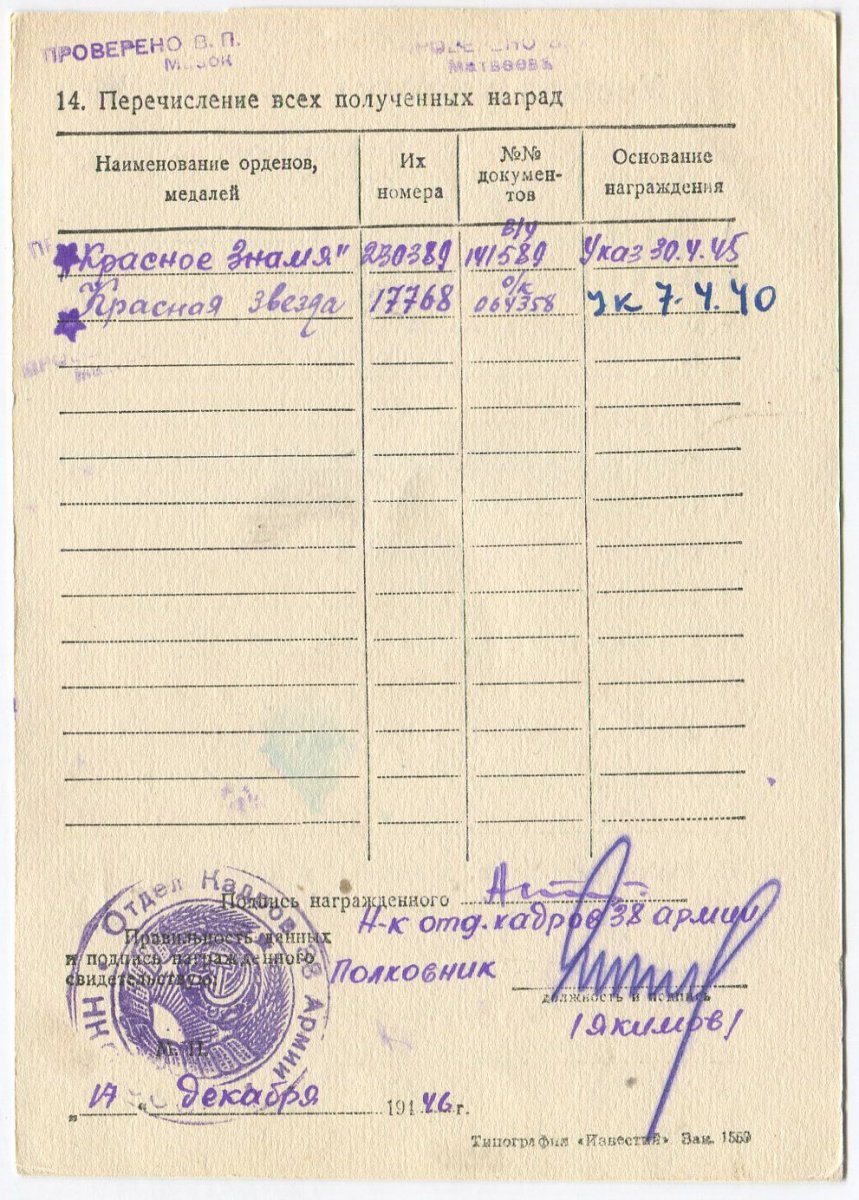 ПРОВЕРЕНО В. П.
Матвеева
14. Перечисление всех полученных наград
Наименование орденов,
медалей
Их
номера
№№
докумен-
тов
Основание
награждения
"Красное Знамя" 230389 в/у 141589 Указ 30.4.45
Красная звезда 17768 о/к 064358 ук 7.4.40
Подпись награжденного
Правильность данных
и подпись награжденного
свидетельствую:
Н-к отд. кадров 38 армии
Полковник
должность и подпись
/Якимов/
Отдел Кадров 38 Армии
М. П.
„17“ декабря 1946 г.
Типография «Известий» Зак. 1559